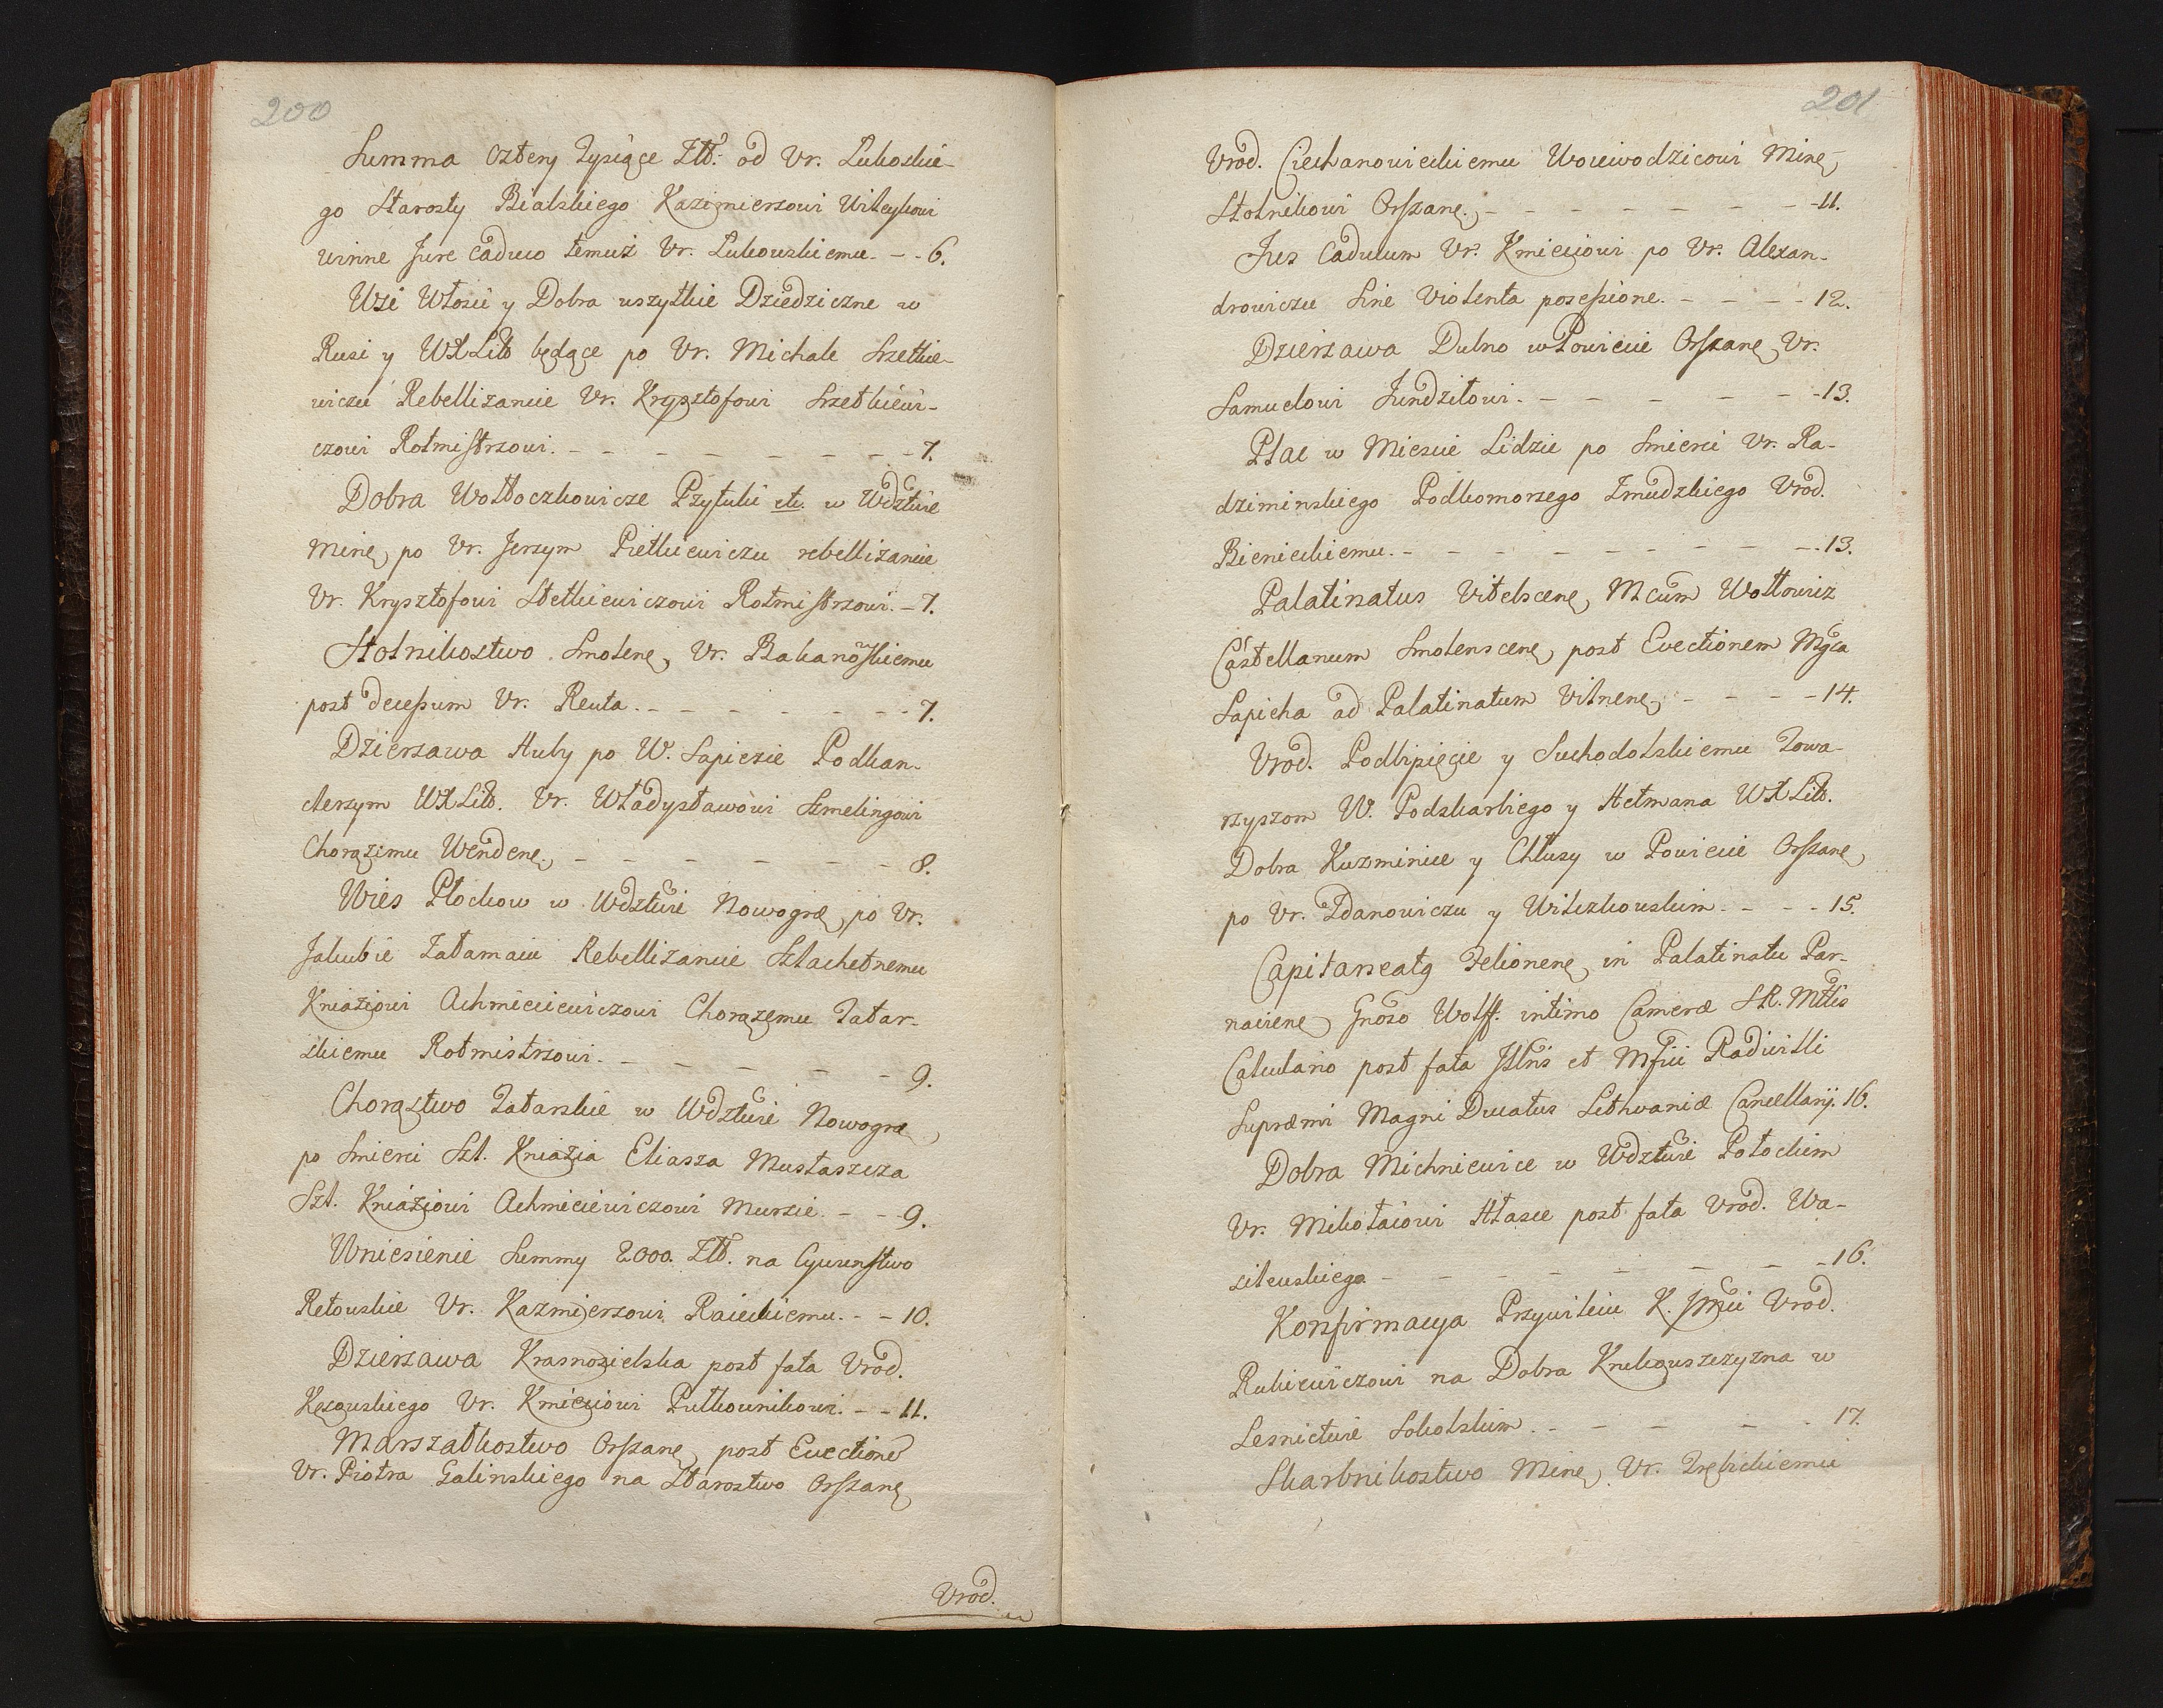 200
Summa cztery Tysiące Ztt: od Vr. Lukoskie-
go Starosty Bialskiego Kazimierzowi Witeykowi
winne Jure caduco temuż Vr. Lukowskiemu. - - 6.
Wsi Włosci y Dobra wszytkie Dziedziczne w
Rusi y WXLitt będące po Vr. Michale Srzetkie-
wiczu Rebellizancie Vr. Krzysztofowi Srzetkiewi-
czowi Rotmistrzowi. - - - - - - - - - 7.
Dobra Wołłoczkowicze Przytuki etc. w Wdztwie
Mine, po Vr. Jerzym Pietkiewiczu rebellizancie
Vr. Krysztofowi Stetkiewiczowi Rotmistrzowi. - 7.
Stolnikostwo Smolene, Vr. Bakanoskiemu
post decessum Vr. Reuta. - - - - - - - - 7.
Dzierzawa Huby po W. Sapiezie Podkan-
clerzym WXLitt. Vr. Władysławowi Szmelingowi
Chorązemu Wendene, - - - - - - 8.
Wies Płochow w Wdztwie Nowogræ, po Vr.
Jakubie Tatamaiu Rebellizancie Szlachetnemu
Kniaziowi Achmieciewiczowi Chorązemu Tatar-
skiemu Rotmistrzowi. - - - - - 9.
Chorąztwo Tatarskie w Wdztwie Nowogræ,
po Smierci Szl. Kniazia Eliasza Mustaszcza
Szl. Kniaziowi Achmieciewiczowi Murzie. - - 9.
Wniesienie Summy 2000. Ztt. na Cywunstwo
Retowskie Vr. Kazmierzowi Raieckiemu. - - 10.
Dzierzawa Krasnosielska post fata Vrod.
Kęzowskiego Vr. Kmieciowi Pułkownikowi. - - 11.
Marszałkostwo Orszane, post Evectione
Vr. Piotra Galinskiego na Starostwo Orszane,
Vrod.
201
Vrod. Ciechanowieckiemu Woiewodzicowi Mine,
Stolnikowi Orszane, - - - - - - - 11.
Jus Cadulum Vr. Kmieciowi po Vr. Alexan-
drowiczu Sine Violenta posessione. - - - - 12.
Dzierzawa Dubno w Powiecie Orszane, Vr.
Samuelowi Jundziłowi. - - - - - - 13.
Plac w Miescie Lidzie po Smierci Vr. Ra-
dziminskiego Podkomorzego Zmudzkiego Vrod.
Bienieckiemu. - - - - - - - - 13.
Palatinatus Vitebscene, M.cum Wołłowicz
Castellanum Smolenscene, post Evectionem Mgca
Sapieha ad Palatinatum Vilnene, - - - - 14.
Vrod. Podbipięcie y Suchodolskiemu Towa-
rzyszom W. Podskarbiego y Hetmana WXLitt.
Dobra Kuzminice y Chłusy w Powiecie Orszane,
po Vr. Zdanowiczu y Witezkowskim. - - - 15.
Capitaneatg Felionene, in Palatinatu Par-
naviene, Gnoso Wolff. intimo Cameræ S.R. Mttis
Cabulario post fata Jllris et Mfici Radivilli
Supræmi Magni Ducatus Lithvaniæ Cancellarij. 16.
Dobra Michniewice w Wdztwie Połockim
Vr. Mikołaiowi Hłasce post fata Vrod. Wa-
silewskiego - - - - - - - - 16.
Konfirmacya Przywileiu K. Jmci Vrod.
Rubiewiczowi na Dobra Krukowszczyzna w
Lesnictwie Sokolskim. - - - - - 17.
Skarbnikostwo Mine, Vr. Trębickiemu